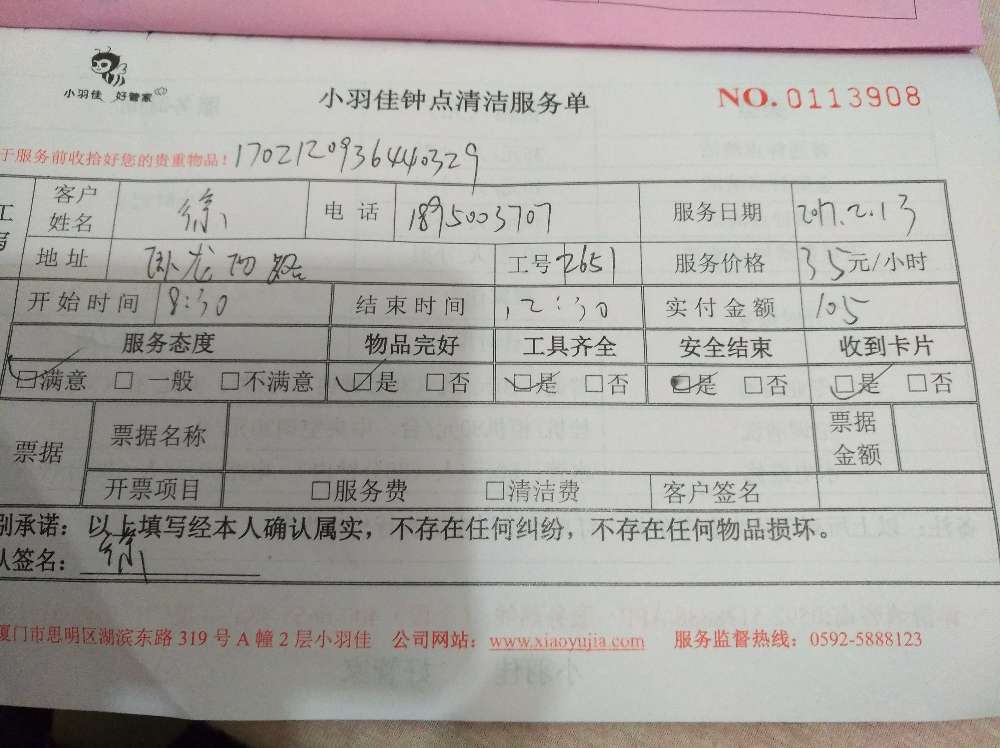 小羽佳 好管家
小羽佳钟点清洁服务单
NO.0113908
于服务前收拾好您的贵重物品! 1702120936440329
客户姓名 徐 电话 1895003707 服务日期 2017.2.13
地址 卧龙 工号 2651 服务价格 35元/小时
开始时间 8:30 结束时间 12:30 实付金额 105
服务态度 物品完好 工具齐全 安全结束 收到卡片
□满意 □一般 □不满意 □是 □否 □是 □否 □是 □否 □是 □否
票据 票据名称 票据金额
开票项目 □服务费 □清洁费 客户签名
别承诺：以上填写经本人确认属实，不存在任何纠纷，不存在任何物品损坏。
人签名：徐
厦门市思明区湖滨东路 319 号 A 幢 2 层小羽佳 公司网站：www.xiaoyujia.com 服务监督热线：0592-5888123